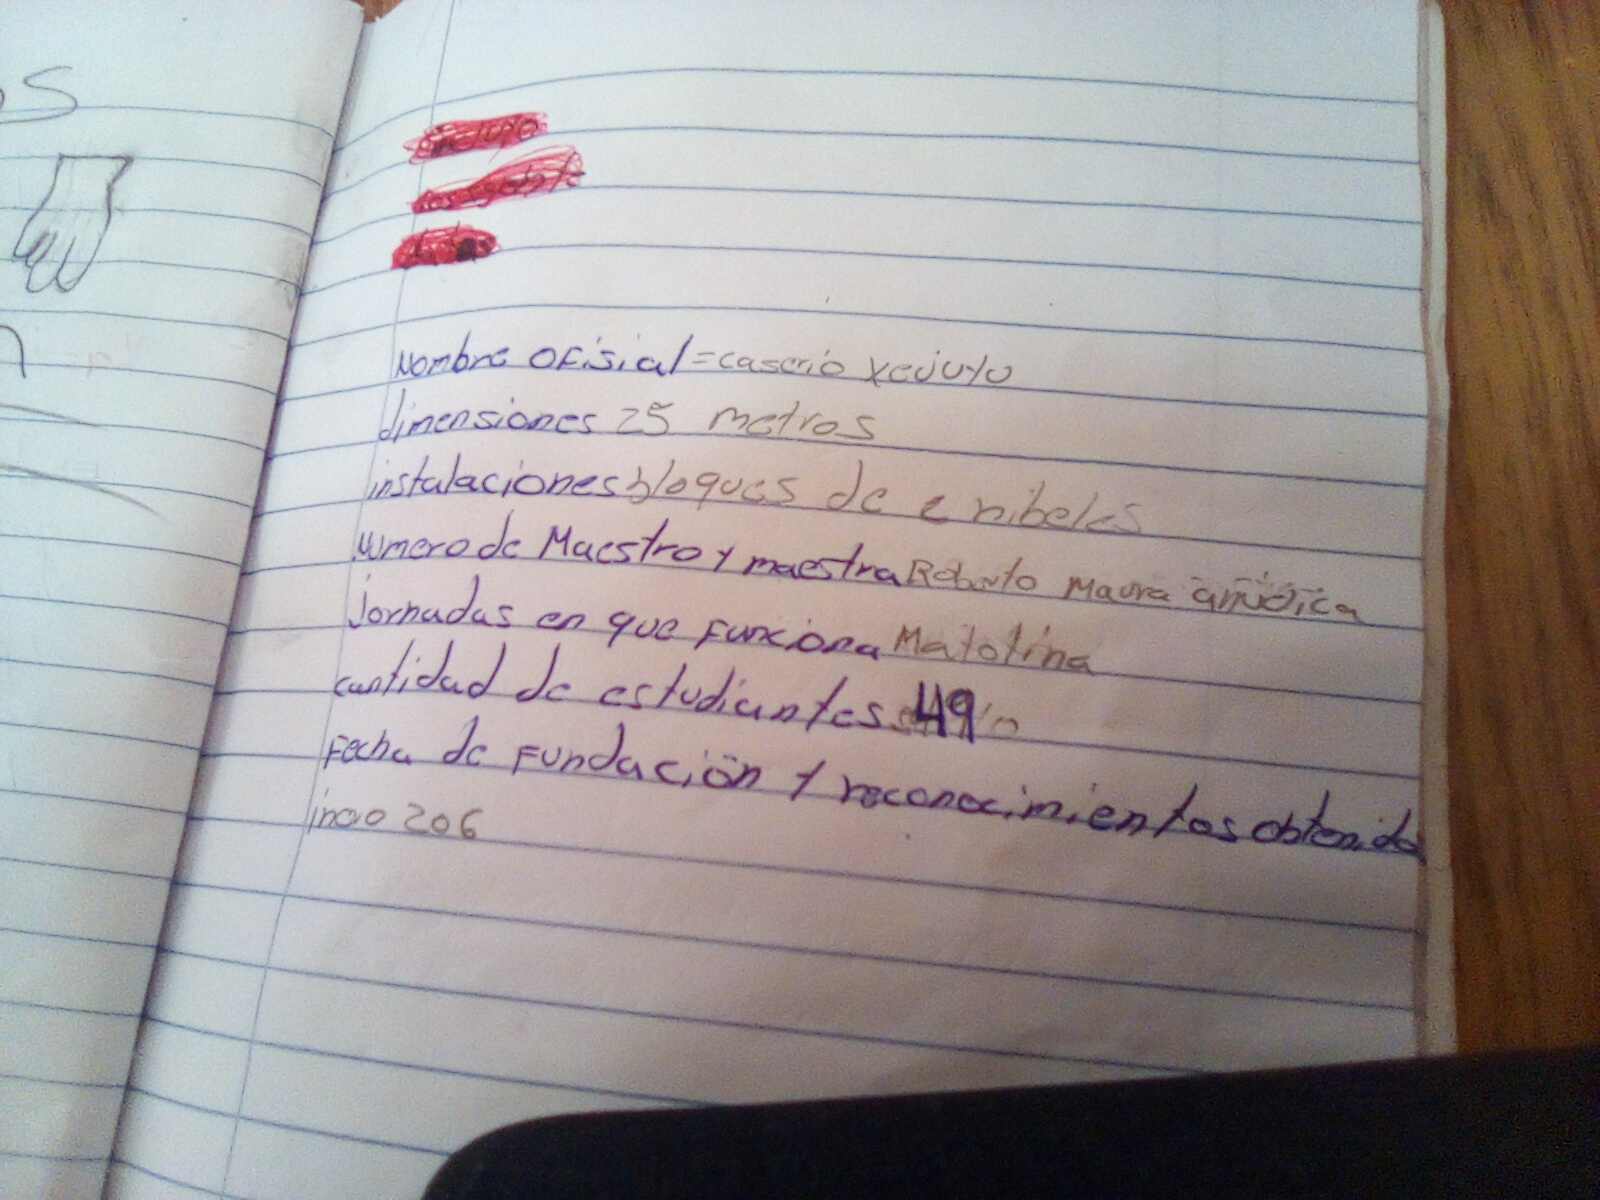 os
n
Nombre Ofisial = caserio xejuyu
dimensiones 25 metros
instalaciones bloques de 2 nibeles
Número de Maestro y maestra Roberto Maura
Jornadas en que Funciona Matotina
cantidad de estudiantes 49
Fecha de Fundación y reconocimientos obtenido
206